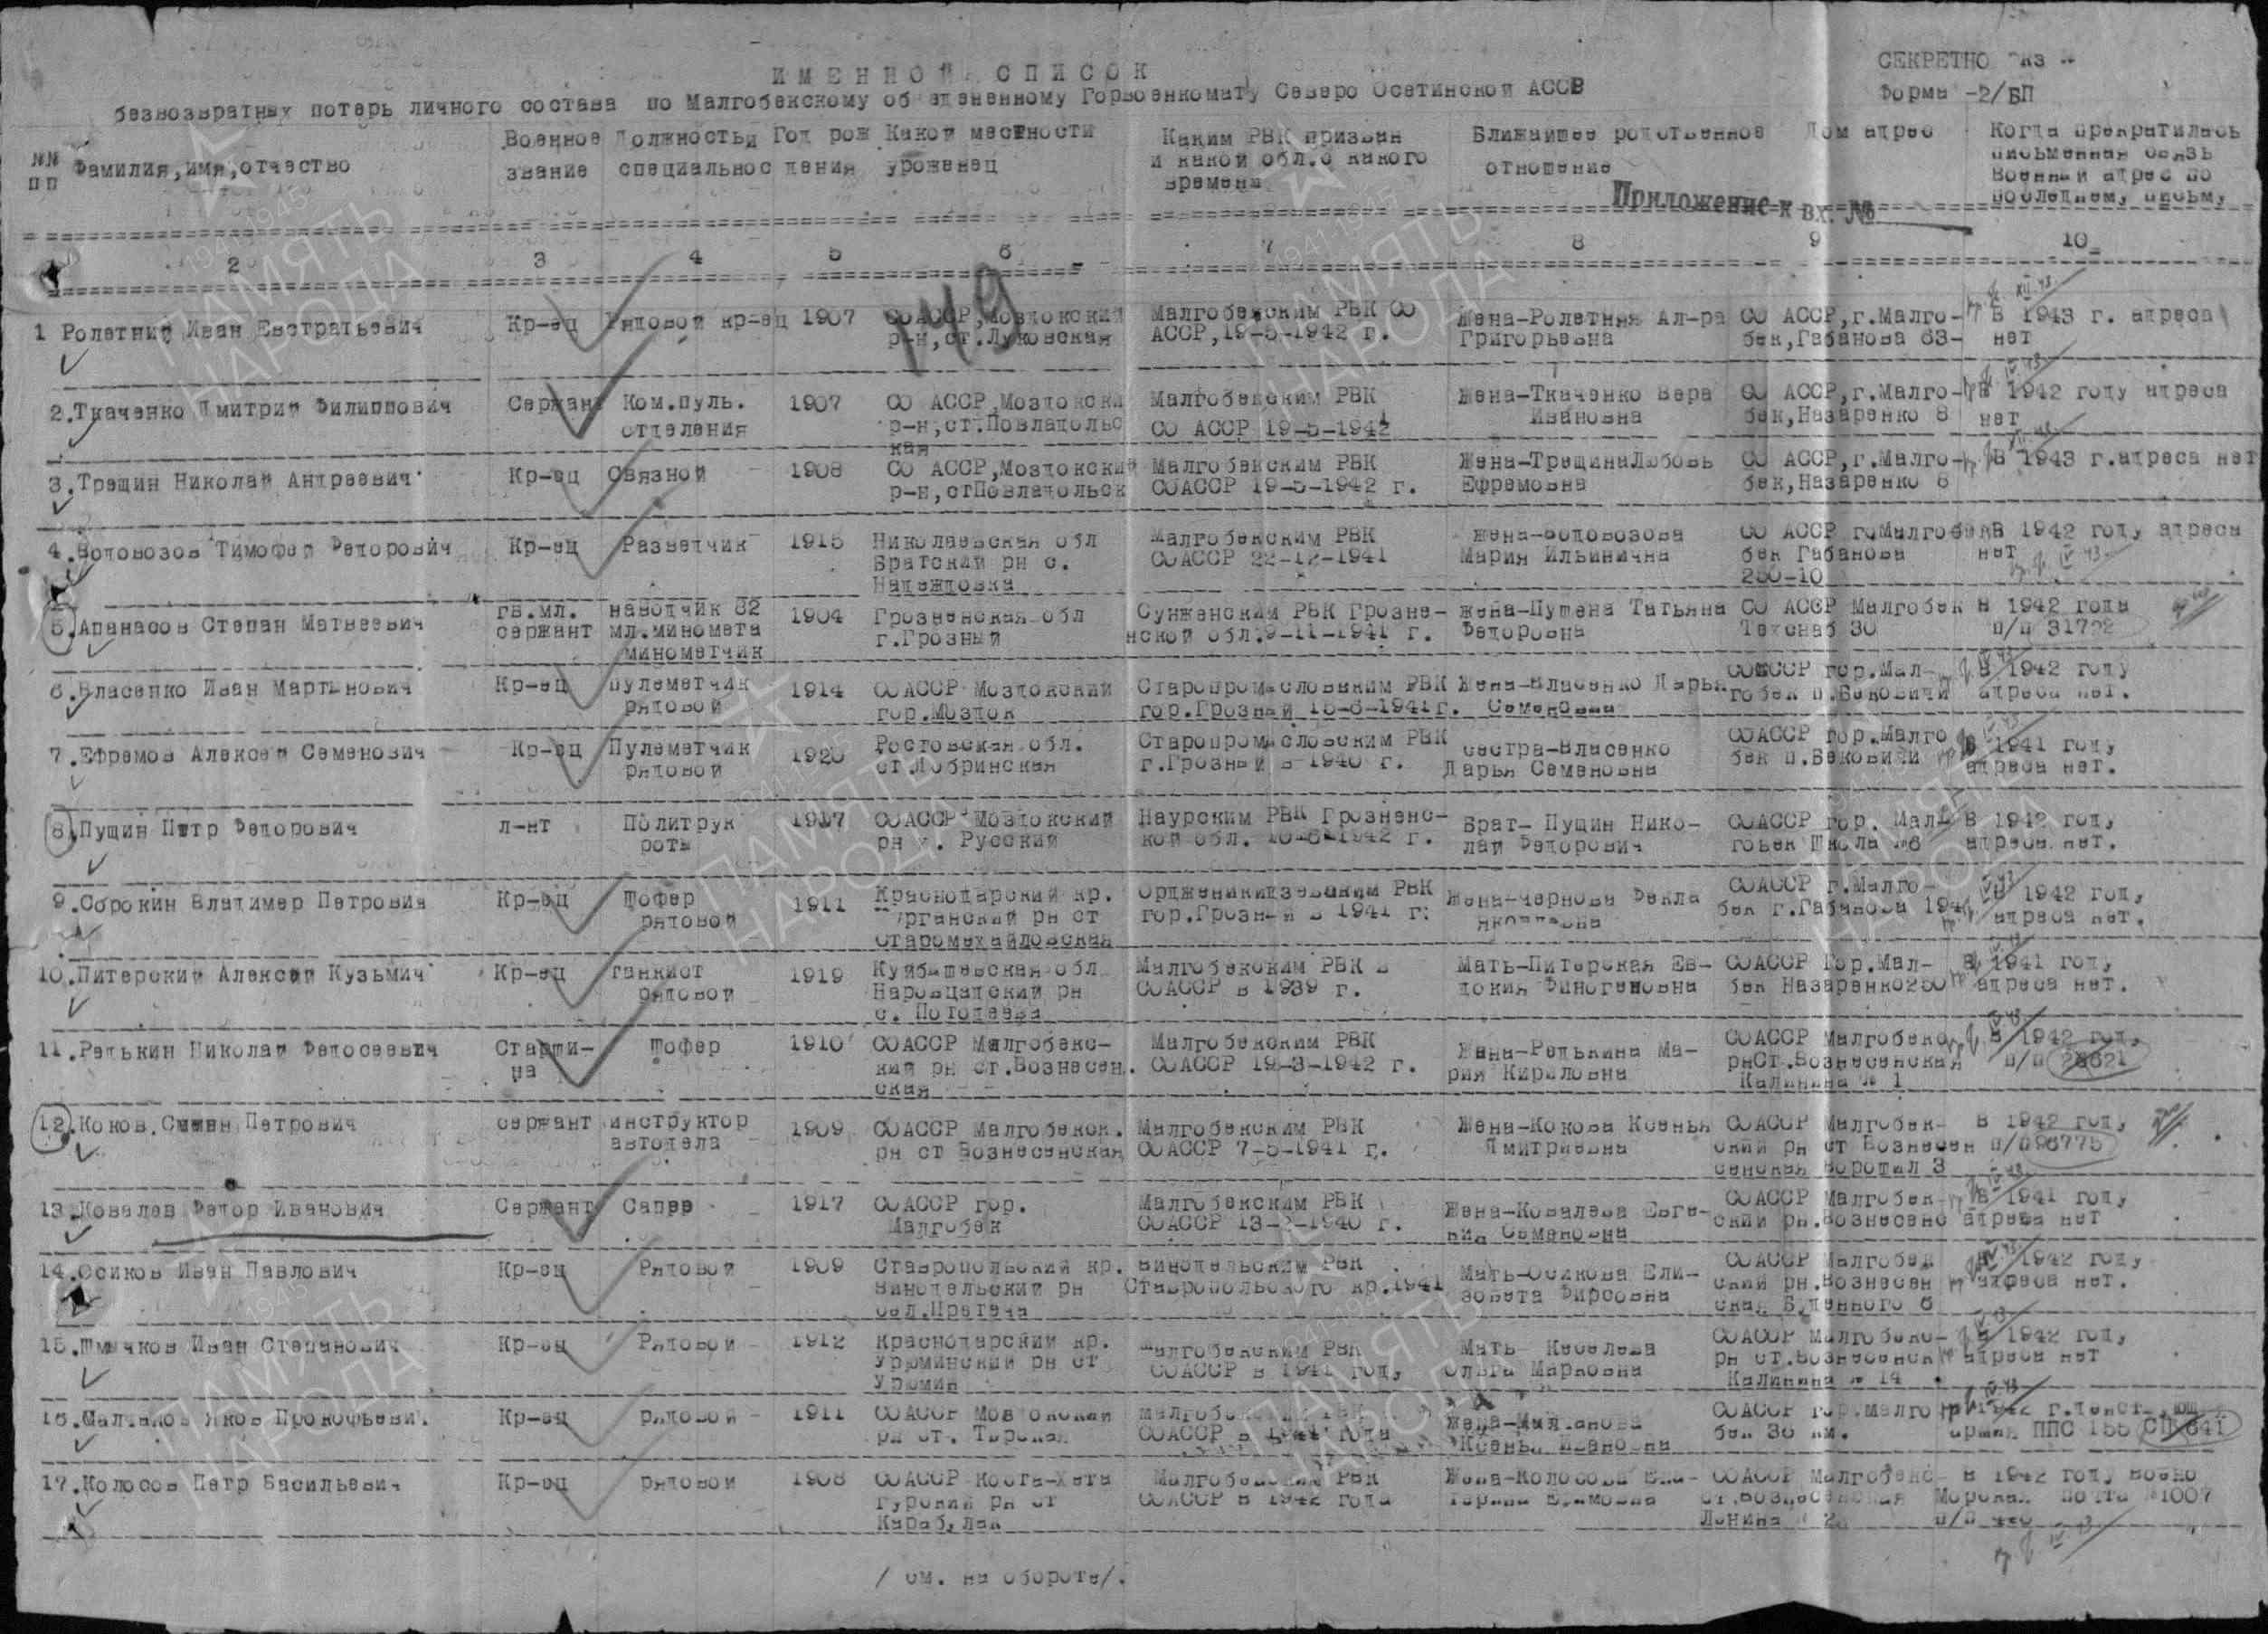 СЕКРЕТНО
ИМЕННОЙ СПИСОК
Форма -2/БП
безвозвратных потерь личного состава по Малгобекскому об единенному Горвоенкомату Северо Осетинской АССР
№№ пп
Фамилия, имя, отчество
Военное звание
Должность и специальнос
Год рож дения
Какой местности уроженец
Каким РВК призван и какой обл. с какого времени
Ближайшее родственное отношение
Дом адрес
Когда прекратилась письменная связь Военный адрес по последнему письму
Приложение к вх. №
2 3 4 5 6 7 8 9 10
149
1 Ролетний Иван Евстратьевич Кр-ец Рядовой кр-ец 1907 СО АССР, Моздокский Малгобекским РВК СО Жена-Ролетняя Ал-ра СО АССР, г.Малго- В 1943 г. адреса
р-н, ст.Луковская АССР, 19-5-1942 г. Григорьевна бек, Габанова 63- нет
2.Ткаченко Дмитрий Филиппович Сержант Ком.пуль. 1907 СО АССР, Моздокски Малгобекским РВК Жена-Ткаченко Вера СО АССР, г.Малго- В 1942 году адреса
отделения р-н, ст.Повладольс СО АССР 19-5-1942 Ивановна бек, Назаренко 8 нет
кая
3.Трещин Николай Андреевич Кр-ец Связной 1908 СО АССР, Моздокский Малгобекским РВК Жена-Трещина Любовь СО АССР, г.Малго- В 1943 г. адреса нет
р-н, стПовладольск СОАССР 19-5-1942 г. Ефремовна бек, Назаренко 6
4.Водовозов Тимофей Федорович Кр-ец Разведчик 1915 Николаевская обл Малгобекским РВК Жена-Водовозова СО АССР гоМалгобек В 1942 году адреса
Братский рн с. СОАССР 22-12-1941 Мария Ильинична бек Габанова нет
Надеждовка 250-10
5.Апанасов Степан Матвеевич гв.мл. наводчик 82 1904 Грозненская обл Сунженским РВК Грозне- Жена-Пушена Татьяна СО АССР Малгобек В 1942 года
сержант мл.миномета г.Грозный нской обл.9-11-1941 г. Федоровна Техснаб 30 п/п 31792
минометчик
6.Власенко Иван Мартынович Кр-ец пулеметчик 1914 СОАССР Моздокский Старопромысловским РВК Жена-Власенко Дарья СОАССР гор.Мал- В 1942 году
рядовой гор.Моздок гор.Грозный 15-6-1941г. Семеновна гобек п.Бековичи адреса нет.
7.Ефремов Алексей Семенович Кр-ец Пулеметчик 1920 Ростовская обл. Старопромысловским РВК сестра-Власенко СОАССР гор.Малго В 1941 году
рядовой ст.Добринская г.Грозный в 1940 г. Дарья Семеновна бек п.Бековичи адреса нет.
8.Пущин Петр Федорович л-нт Политрук 1917 СОАССР Моздокский Наурским РВК Грозненс- Брат- Пущин Нико- СОАССР гор. Мал- В 1942 году
роты рн х. Русский кой обл. 10-6-1942 г. лай Федорович гобек Школа №6 адреса нет.
9.Сорокин Владимер Петрович Кр-ец Шофер 1911 Краснодарский кр. Ордженикидзевским РВК Жена-Чернова Фекла СОАССР г.Малго- В 1942 году
рядовой Курганский рн ст гор.Грозный в 1941 г. Яковлевна бек г.Габанова 194 адреса нет.
Старомехайловская
10.Питерский Алексей Кузьмич Кр-ец танкист 1919 Куйбышевская обл Малгобекским РВК в Мать-Питерская Ев- СОАССР Гор.Мал- В 1941 году
рядовой Наровцадский рн СОАССР в 1939 г. докия Финогеновна бек Назаренко250 адреса нет.
с. Потодеева
11.Редькин Николай Федосеевич Старши- Шофер 1910 СОАССР Малгобекс- Малгобекским РВК Жена-Редькина Ма- СОАССР Малгобекс В 1942 году
на кий рн ст.Вознесен. СОАССР 19-3-1942 г. рия Кириловна рнСт.Вознесенская п/п 26621
ская Калинина № 1
12.Коков Семен Петрович сержант инструктор 1909 СОАССР Малгобекск. Малгобекским РВК Жена-Кокова Ксенья СОАССР Малгобек- В 1942 году
автодела рн ст Вознесенская СОАССР 7-5-1941 г. Дмитриевна ский рн ст Вознесен п/п 96775
сенская Ворошил 3
13.Ковалев Федор Иванович Сержант Сапер 1917 СОАССР гор. Малгобекским РВК Жена-Ковалева Евге- СОАССР Малгобек- В 1941 году
Малгобек СОАССР 13-2-1940 г. ния Семановна ский рн.Вознесено адреса нет
14.Осиков Иван Павлович Кр-ец Рядовой 1909 Ставропольский кр. Винодельским РВК Мать-Осикова Ели- СОАССР Малгобек В 1942 году
Винодельский рн Ставропольского кр.1941 зовета Фирсовна ский рн.Вознесен адреса нет.
сел.Претача ская Буденного 6
15.Шмычков Иван Степанович Кр-ец Рядовой 1912 Краснодарский кр. Малгобекским РВК Мать- Киселева СОАССР Малгобекс- В 1942 году
Урюминский рн ст СОАССР в 1941 году Ольга Марковна рн ст.Вознесенск адреса нет
Урюмин Калинина № 14
16.Малтаков Яков Прокофьевич Кр-ец рядовой 1911 СОАССР Моздокский Малгобекским РВК Жена- СОАССР гор.малго
рн ст. Терская СОАССР в 1941 года Ксенья Ивановна бек 36 км. ППС 155
17.Колосов Петр Васильевич Кр-ец рядовой 1908 СОАССР Коста-Хета Малгобекским РВК Жена-Колосова Ека- СОАССР Малгобекс- В 1942 году Воено
гурский рн ст СОАССР в 1942 года терина ст.Вознесенская Морская почта №1007
Карабулак Ленина 2 п/п
/ см. на обороте/.
1941-1945
ПАМЯТЬ
НАРОДА